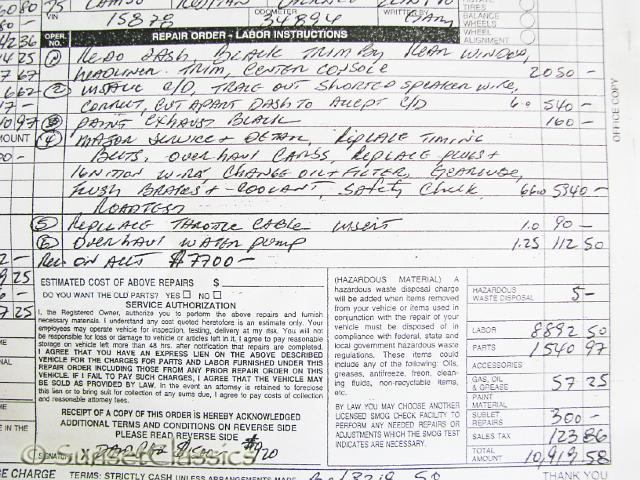 VIN 15878 ODOMETER 34894 WRITTEN BY Gary
TIRES
BALANCE WHEELS
WHEEL ALIGNMENT
OPER. NO. REPAIR ORDER - LABOR INSTRUCTIONS
1 READ DASH, BLACK TRIM BY REAR WINDOW,
HEADLINER TRIM, CENTER CONSOLE 2050 -
2 INSTALL C/D, TRACE OUT SHORTED SPEAKER WIRE,
CORRECT, CUT APART DASH TO ACCEPT C/D 6.0 540 -
3 PAINT EXHAUST BLACK 160 -
4 MAJOR SERVICE + DETAIL, REPLACE TIMING
BELTS, OVERHAUL CARBS, REPLACE PLUGS +
IGNITION WIRES, CHANGE OIL + FILTER, GEARLUBE,
FLUSH BRAKES + COOLANT, SAFETY CHECK, 66.0 5940 -
ROADTEST
5 REPLACE THROTTLE CABLE INSERT 1.0 90 -
6 OVERHAUL WATER PUMP 1.25 112 50
REC. ON ACCT $7700 -
OFFICE COPY
ESTIMATED COST OF ABOVE REPAIRS $
DO YOU WANT THE OLD PARTS? YES NO
SERVICE AUTHORIZATION
I, the Registered Owner, authorize you to perform the above repairs and furnish
necessary materials. I understand any cost quoted heretofore is an estimate only. Your
employees may operate vehicle for inspection, testing, delivery at my risk. You will not
be responsible for loss or damage to vehicle or articles left in it. I agree to pay reasonable
storage on vehicle left more than 48 hrs. after notification that repairs completed.
I AGREE THAT YOU HAVE AN EXPRESS LIEN ON THE ABOVE DESCRIBED
VEHICLE FOR THE CHARGES FOR PARTS AND LABOR FURNISHED UNDER THIS
REPAIR ORDER INCLUDING THOSE FROM ANY PRIOR REPAIR ORDER ON THIS
VEHICLE. IF I FAIL TO PAY SUCH CHARGES, I AGREE THE VEHICLE MAY
BE SOLD AS PROVIDED BY LAW. In the event an attorney is retained to foreclose
this lien or to bring suit for collection of any sums due, I agree to pay costs of collection
and reasonable attorney fees.
RECEIPT OF A COPY OF THIS ORDER IS HEREBY ACKNOWLEDGED
ADDITIONAL TERMS AND CONDITIONS ON REVERSE SIDE
PLEASE READ REVERSE SIDE
SIGNATURE
SunsetClassics
(HAZARDOUS MATERIAL) A
hazardous waste disposal charge
will be added when items removed
from your vehicle or items used in
conjunction with the repair of your
vehicle must be disposed of in
compliance with federal, state and
local government hazardous waste
regulations. These items could
include any of the following: Oils,
greases, antifreeze, freon, cleaning
fluids, non-recyclable items,
etc.
BY LAW YOU MAY CHOOSE ANOTHER
LICENSED SMOG CHECK FACILITY TO
PERFORM ANY NEEDED REPAIRS OR
ADJUSTMENTS WHICH THE SMOG TEST
INDICATES ARE NECESSARY.
HAZARDOUS WASTE DISPOSAL 5 -
LABOR 8892 50
PARTS 1540 97
ACCESSORIES
GAS, OIL & GREASE 57 25
PAINT MATERIAL
SUBLET REPAIRS 300 -
SALES TAX 123 86
TOTAL AMOUNT 10,919.58
TERMS: STRICTLY CASH UNLESS ARRANGEMENTS MADE
THANK YOU